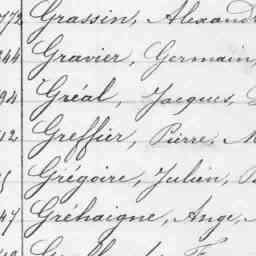 772 Grassin, Alexand
Gravier, Germain,
94 Gréal, Jacques,
12 Greffier, Pierre, M
Grégoire, Julien,
47 Gréhaigne, Ange,